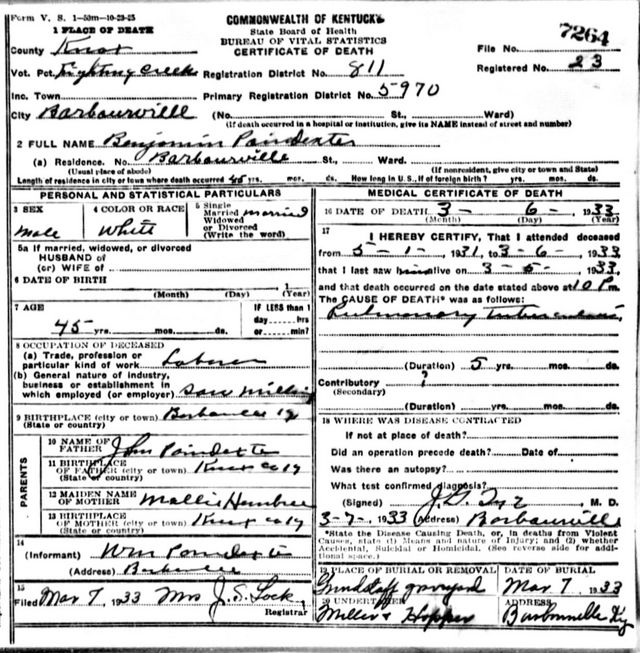 Form V. S. 1-50m-10-23-25
COMMONWEALTH OF KENTUCKY
State Board of Health
BUREAU OF VITAL STATISTICS
CERTIFICATE OF DEATH
1 PLACE OF DEATH
County Knox
File No. 7264
Vot. Pct. Fighting Creek Registration District No. 811
Registered No. 23
Inc. Town Primary Registration District No. 5970
City Barbourville (No. St., Ward)
(If death occurred in a hospital or institution, give its NAME instead of street and number)
2 FULL NAME Benjamin Poindexter
(a) Residence. No. Barbourville St., Ward.
(Usual place of abode) (If nonresident, give city or town and State)
Length of residence in city or town where death occurred 45 yrs. mos. ds. How long in U. S., if of foreign birth? yrs. mos. ds.
PERSONAL AND STATISTICAL PARTICULARS
3 SEX Male
4 COLOR OR RACE White
5 Single Married Widowed or Divorced (Write the word) married
5a If married, widowed, or divorced
HUSBAND of
(or) WIFE of
6 DATE OF BIRTH
(Month) (Day) 1 (Year)
7 AGE
45 yrs. mos. ds.
IF LESS than 1 day hrs or min?
8 OCCUPATION OF DECEASED
(a) Trade, profession or
particular kind of work Laborer
(b) General nature of industry,
business or establishment in
which employed (or employer) Saw Milling
9 BIRTHPLACE (city or town) Ky
(State or country)
PARENTS
10 NAME OF
FATHER John Poindexter
11 BIRTHPLACE
OF FATHER (city or town) Knox Co Ky
(State or country)
12 MAIDEN NAME
OF MOTHER Mollie
13 BIRTHPLACE
OF MOTHER (city or town) Knox Co Ky
(State or country)
14
(Informant) Wm Poindexter
(Address)
15
Filed Mar 7, 1933 Mrs J. S. Lock
Registrar
MEDICAL CERTIFICATE OF DEATH
16 DATE OF DEATH 3- 6-, 1933
(Month) (Day) (Year)
17
I HEREBY CERTIFY, That I attended deceased
from 5-1-, 1931, to 3-6-, 1933
that I last saw him alive on 3-5-, 1933,
and that death occurred on the date stated above at 10 P m.
The CAUSE OF DEATH* was as follows:
Pulmonary tuberculosis
(Duration) 5 yrs. mos. ds.
Contributory ?
(Secondary)
(Duration) yrs. mos. ds.
18 WHERE WAS DISEASE CONTRACTED
If not at place of death?
Did an operation precede death? Date of
Was there an autopsy?
What test confirmed diagnosis?
(Signed) M. D.
3-7-, 1933 (Address) Barbourville
*State the Disease Causing Death, or, in deaths from Violent
Causes, state (1) Means and nature of Injury; and (2) whether
Accidental, Suicidal or Homicidal. (See reverse side for addi-
tional space.)
19 PLACE OF BURIAL OR REMOVAL
graveyard
DATE OF BURIAL
Mar 7 1933
20 UNDERTAKER
Hopper
ADDRESS
Barbourville Ky